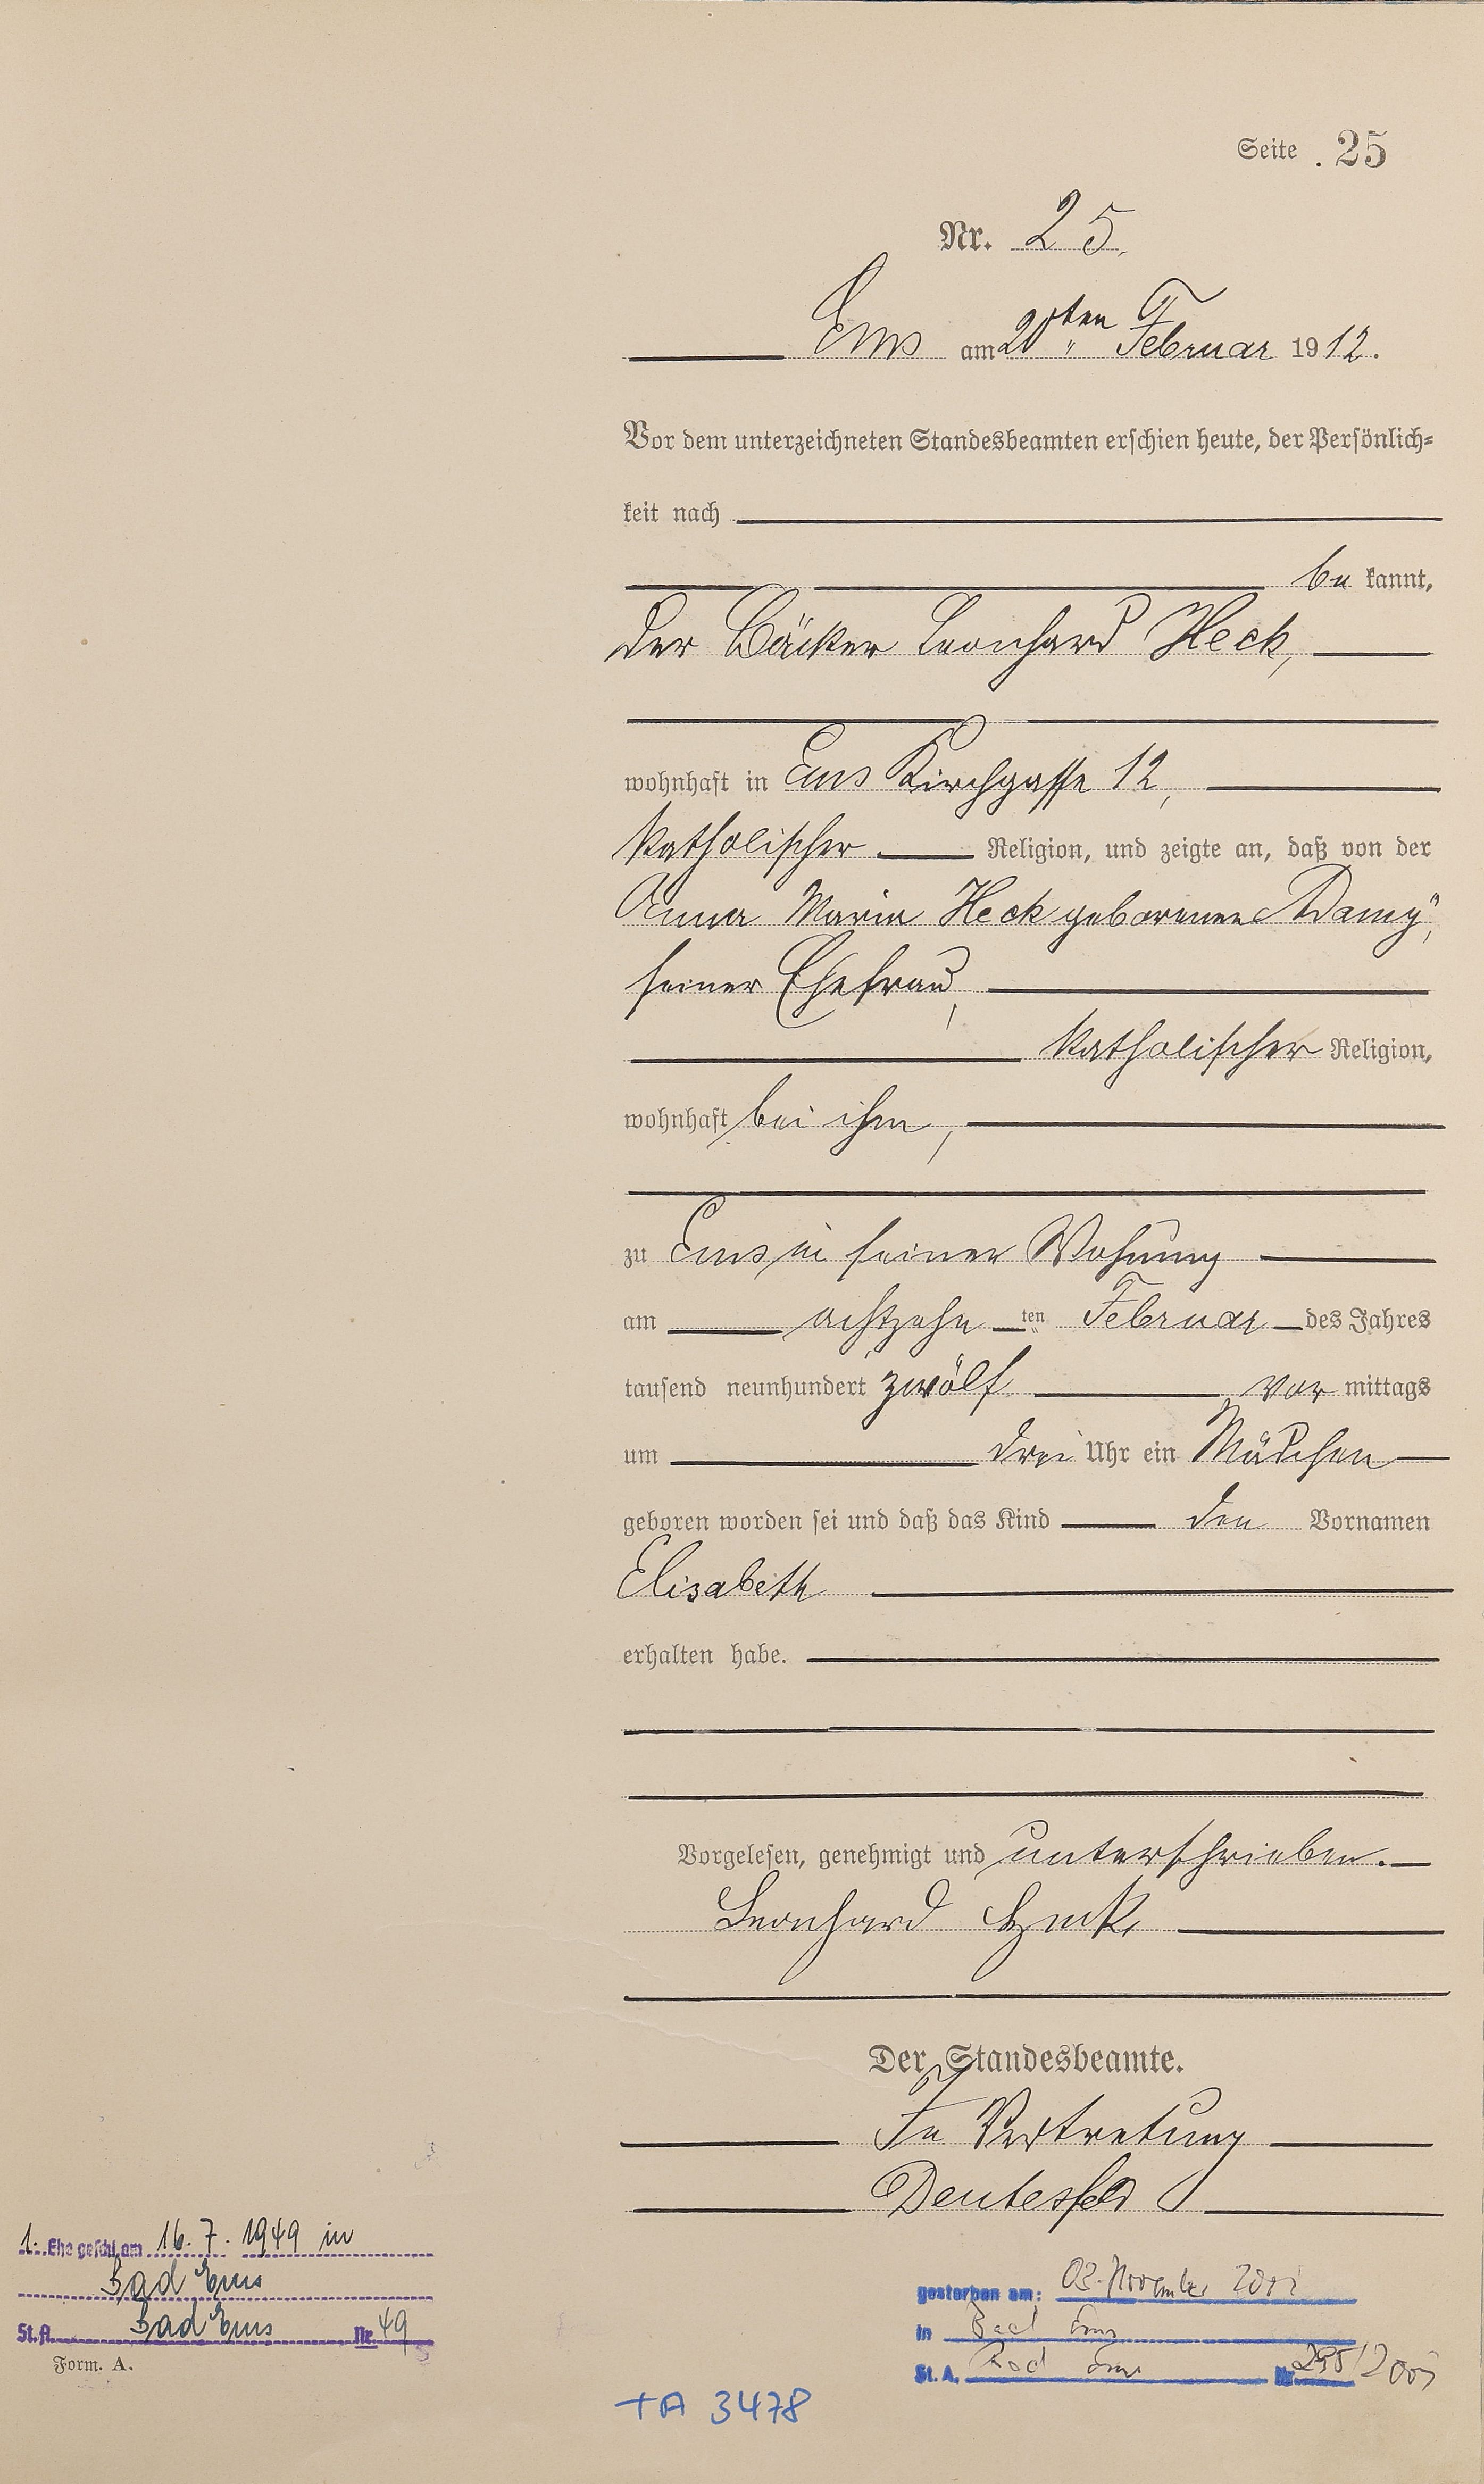 Seite 25
Nr. 25.
Ems am 20ten Februar 1912.
Vor dem unterzeichneten Standesbeamten erschien heute, der Persönlich-
keit nach
be kannt,
der Bäcker Leonhard Heck,
wohnhaft in Ems Kirchgasse 12,
katholischer Religion, und zeigte an, daß von der
Anna Maria Heck geborenen
seiner Ehefrau,
katholischer Religion,
wohnhaft bei ihm,
zu Ems in seiner Wohnung
am achtzehn ten Februar des Jahres
tausend neunhundert zwölf vor mittags
um drei Uhr ein Mädchen
geboren worden sei und daß das Kind den Vornamen
Elisabeth
erhalten habe.
Vorgelesen, genehmigt und unterschrieben.
Leonhard Heck
Der Standesbeamte.
In Vertretung
1. Ehe geschl. am 16. 7. 1949 in
Bad Ems
St. A. Bad Ems Nr. 49
Form. A.
gestorben am: 03. November
in Bad Ems
St. A. Bad Ems Nr.
TA 3478